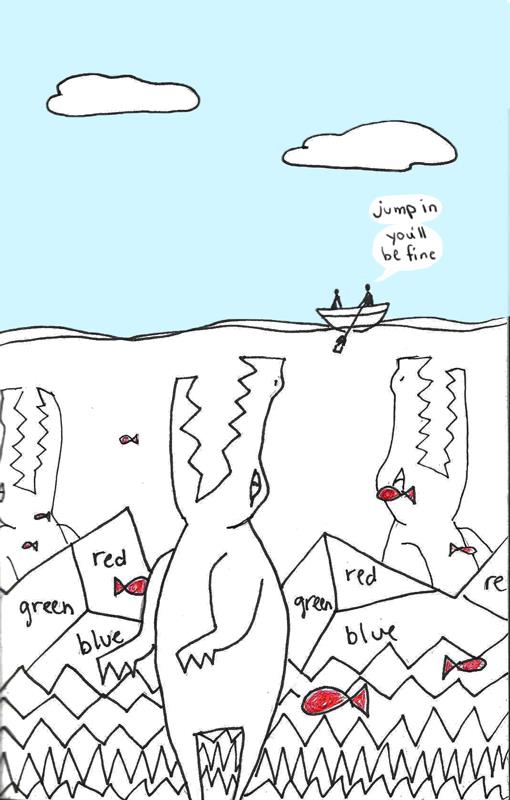 jump in
you'll
be fine
red
green
blue
red
green
blue
re